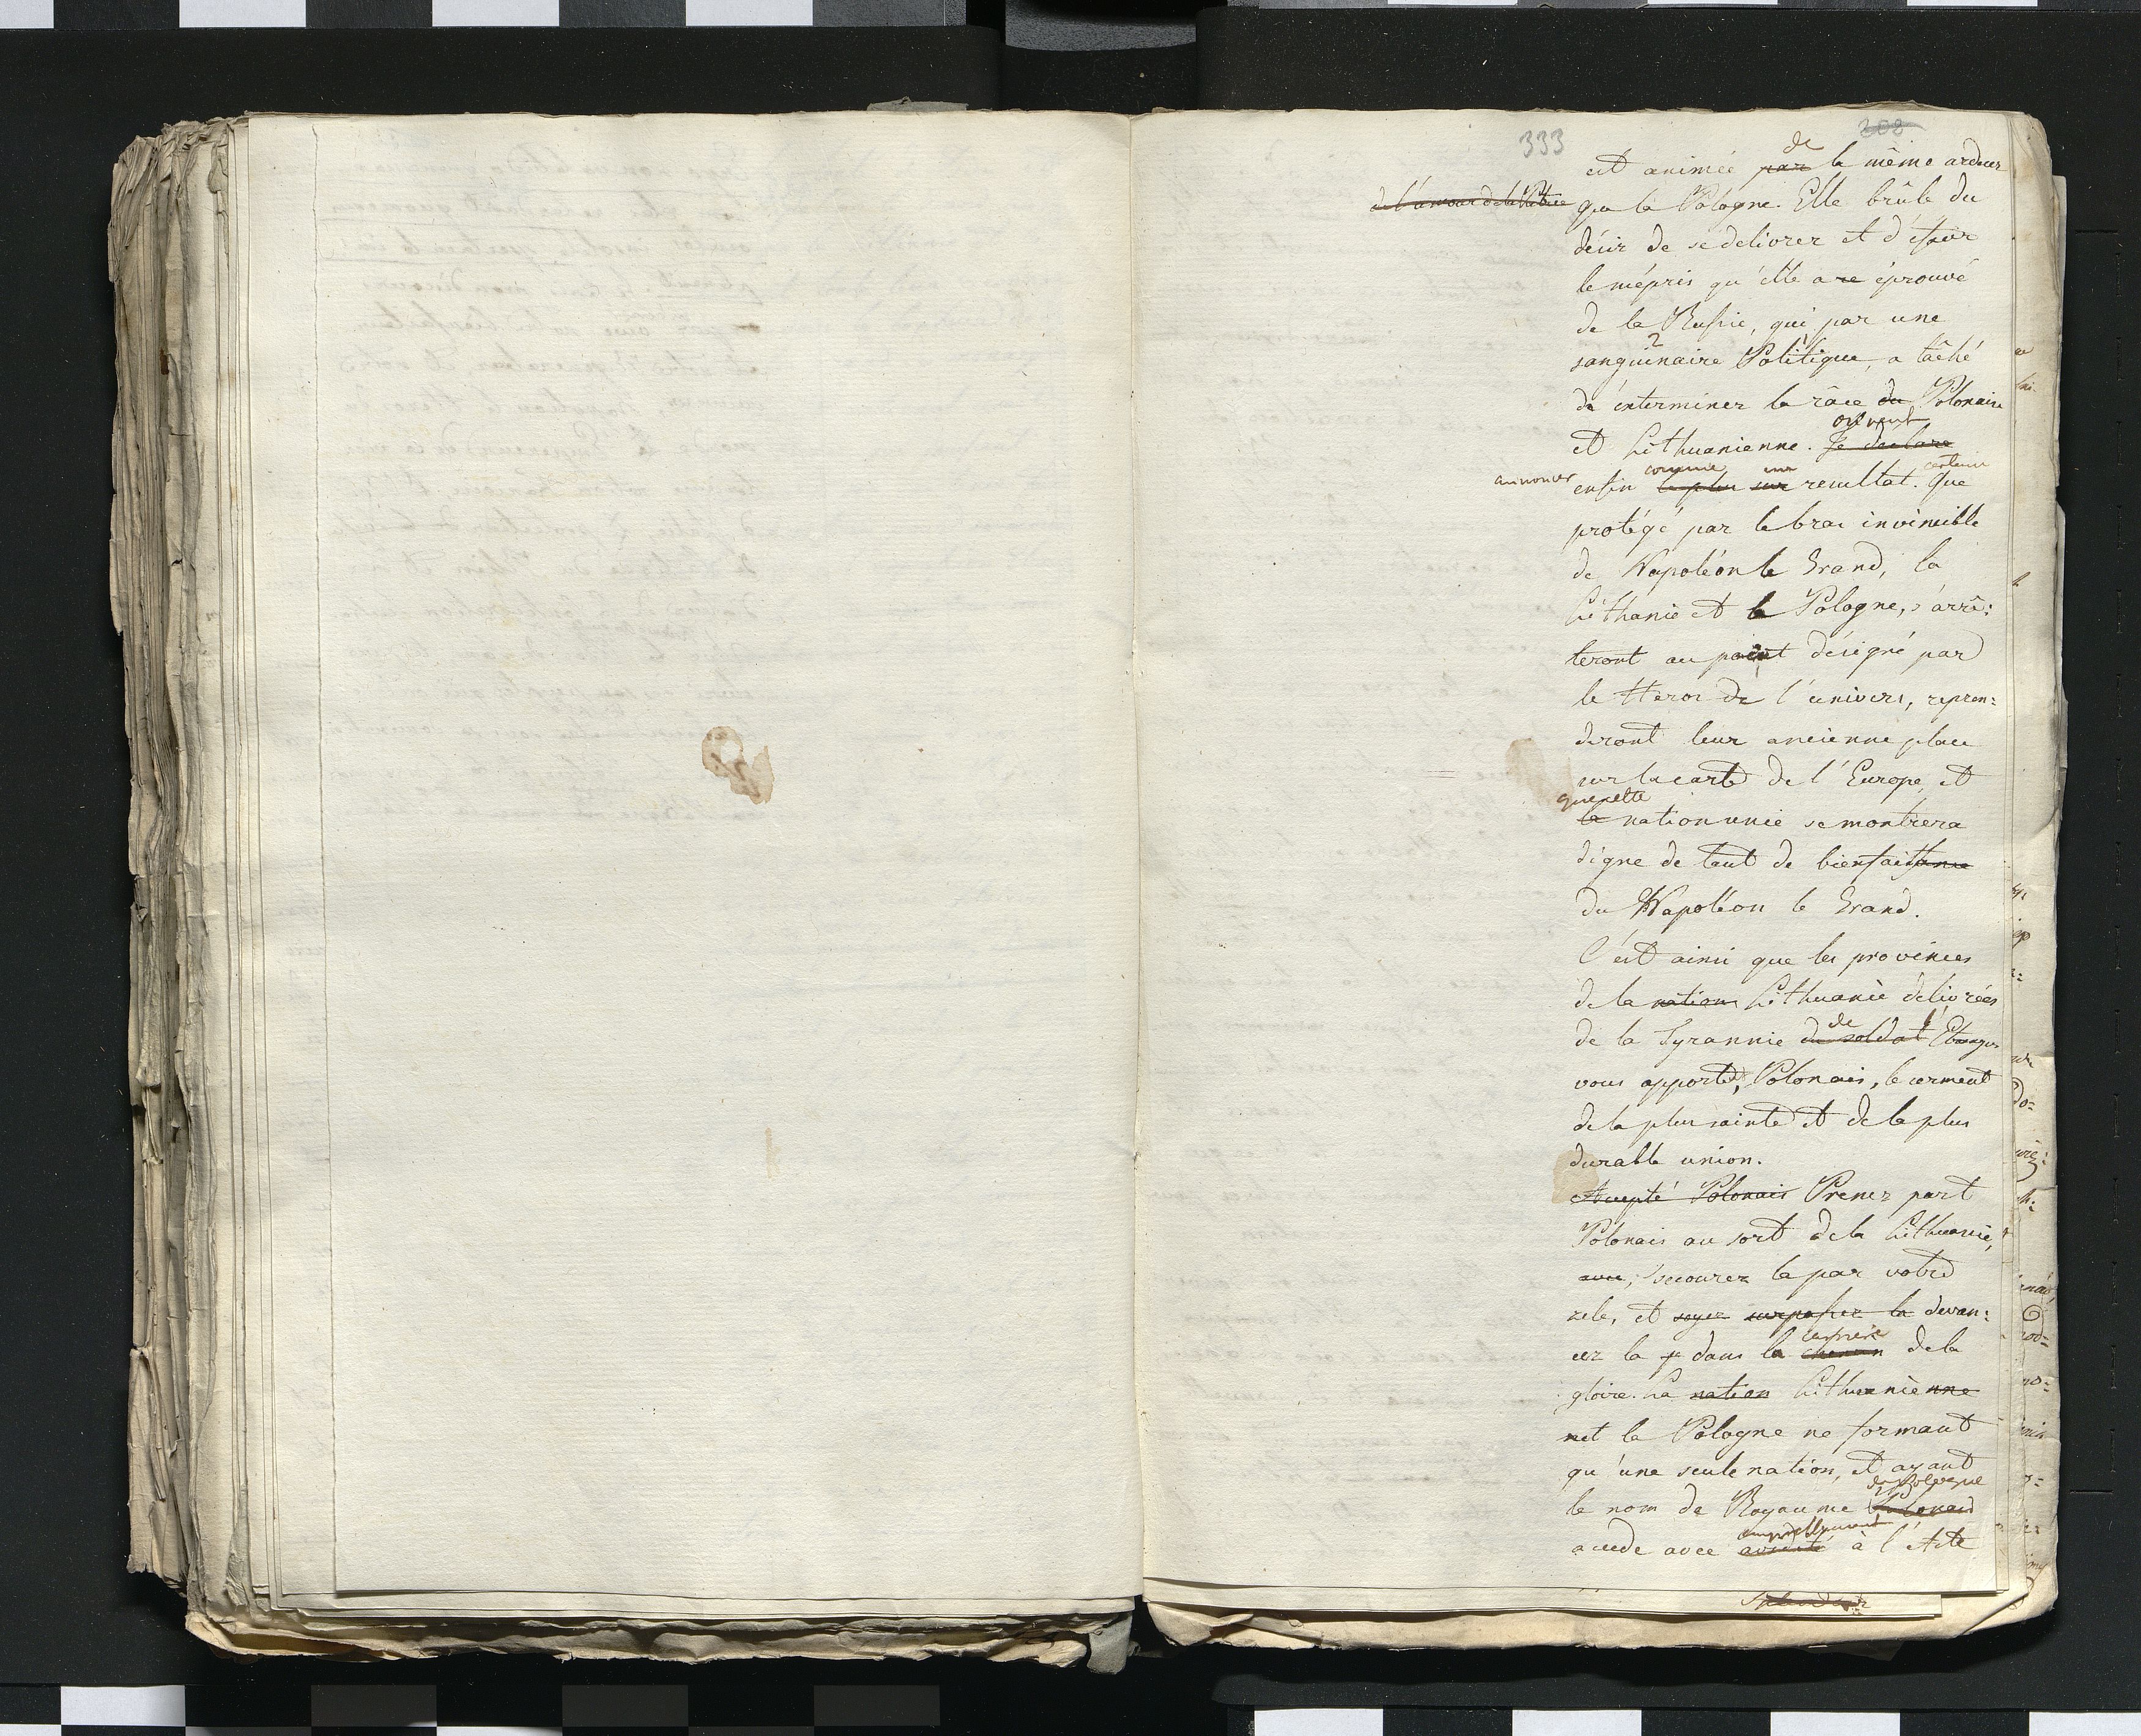 333
202
est animée par de la même ardeur
de l'amour de la Patrie que la Pologne. Elle brûle du
désir de se delivrer et d'éfair
le mépris qu'elle a re éprouvé
de la Russie, qui par une
sanguinaire 2 Politique 1, a tâché
de exterminer la râce du Polonaise
et Lithuanienne. Je declare on veut
annoncer enfin le plus sur comme un resultat certain. Que
protégé par le bras invincible
de Napoléon le Grand, la
Lithanie et la Pologne, s'arrê:
teront au point désigné par
le Heros de l'univers, repren:
dront leur ancienne place
sur la carte de l'Europe, et
que cette la nation unie se montrera
digne de tant de bienfaissance
du Napoléon le Grand.
C'est ainsi que les provinces
de la nation Lithuanie délivrées
de la Tyrannie du soldat de l'Etranger
vous apporte, Polonais, le serment
de la plus sainte et de la plus
durable union.
Accepté Polonais Prenez part
Polonais au sort de la Lithuanie,
avec, secourez la par votre
zele, et soyez surpasser la devan:
cez la p dans la chemin carriere de la
gloire. La nation Lithuanienne
net la Pologne ne formant
qu'une seule nation, et ayant
le nom de Royaume Polonais de Pologne
accede avec avidité empressement à l'Acte